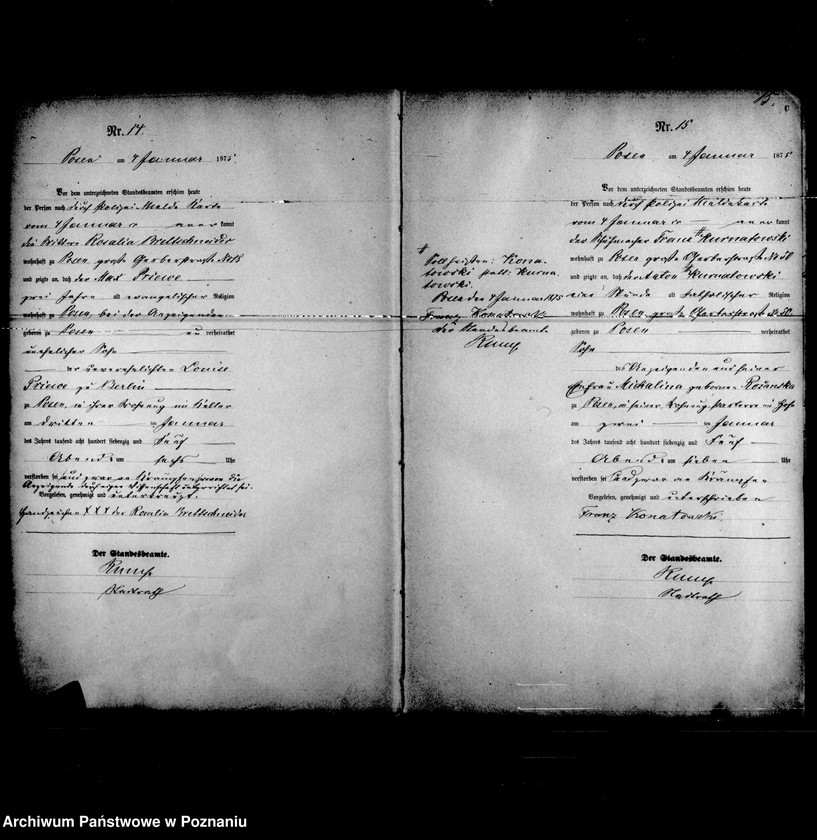 Nr. 14
Posen am 4 Januar 1875
Vor dem unterzeichneten Standesbeamten erschien heute
der Person nach durch Polizei Melde Karte
vom 4 Januar cr kannt
die Rosalia Brettschneider
wohnhaft zu Posen große Gerberstraße No 18
und zeigte an, daß der Max Priewe
zwei Jahre alt evangelischer Religion
wohnhaft zu Posen, bei der Anzeigenden
geboren zu Posen un verheirathet
unehelicher Sohn
der unverehelichten Louise
Priewe zu Berlin
zu Posen, in ihrer Wohnung im Keller
am dritten Januar
des Jahres tausend acht hundert siebenzig und Fünf
Abends um sechs Uhr
verstorben sei und zwar an Krämpfen
Anzeigende aus eigner Wissenschaft unterrichtet sei.
Vorgelesen, genehmigt und unterkreuzt.
Handzeichen X X X der Rosalia Brettschneider
Der Standesbeamte.
Stadtrath
15.
Nr. 15
Posen am 4 Januar 1875
Vor dem unterzeichneten Standesbeamten erschien heute
der Person nach durch Polizei Meldekarte
vom 4 Januar cr kannt
der Schuhmacher Franz Kurnatowski
wohnhaft zu Posen große Gerberstraße No 50
und zeigte an, daß Anton Kurnatowski
eine Stunde alt katholischer Religion
wohnhaft zu Posen große Gerberstraße No 50
geboren zu Posen verheirathet
Sohn
des Anzeigenden und seiner
Ehefrau Michalina geborene
zu Posen, in seiner Wohnung parterre im Hofe
am zwei Januar
des Jahres tausend acht hundert siebenzig und Fünf
Abends um sieben Uhr
verstorben sei und zwar an Krämpfen
Vorgelesen, genehmigt und unterschrieben
Franz Konatowski
Der Standesbeamte.
Stadtrath
Soll heißen: Kona-
towski statt: Kurna-
towski.
Posen den 4 Januar 1875
Franz Konatowski
Der Standesbeamte
Archiwum Państwowe w Poznaniu